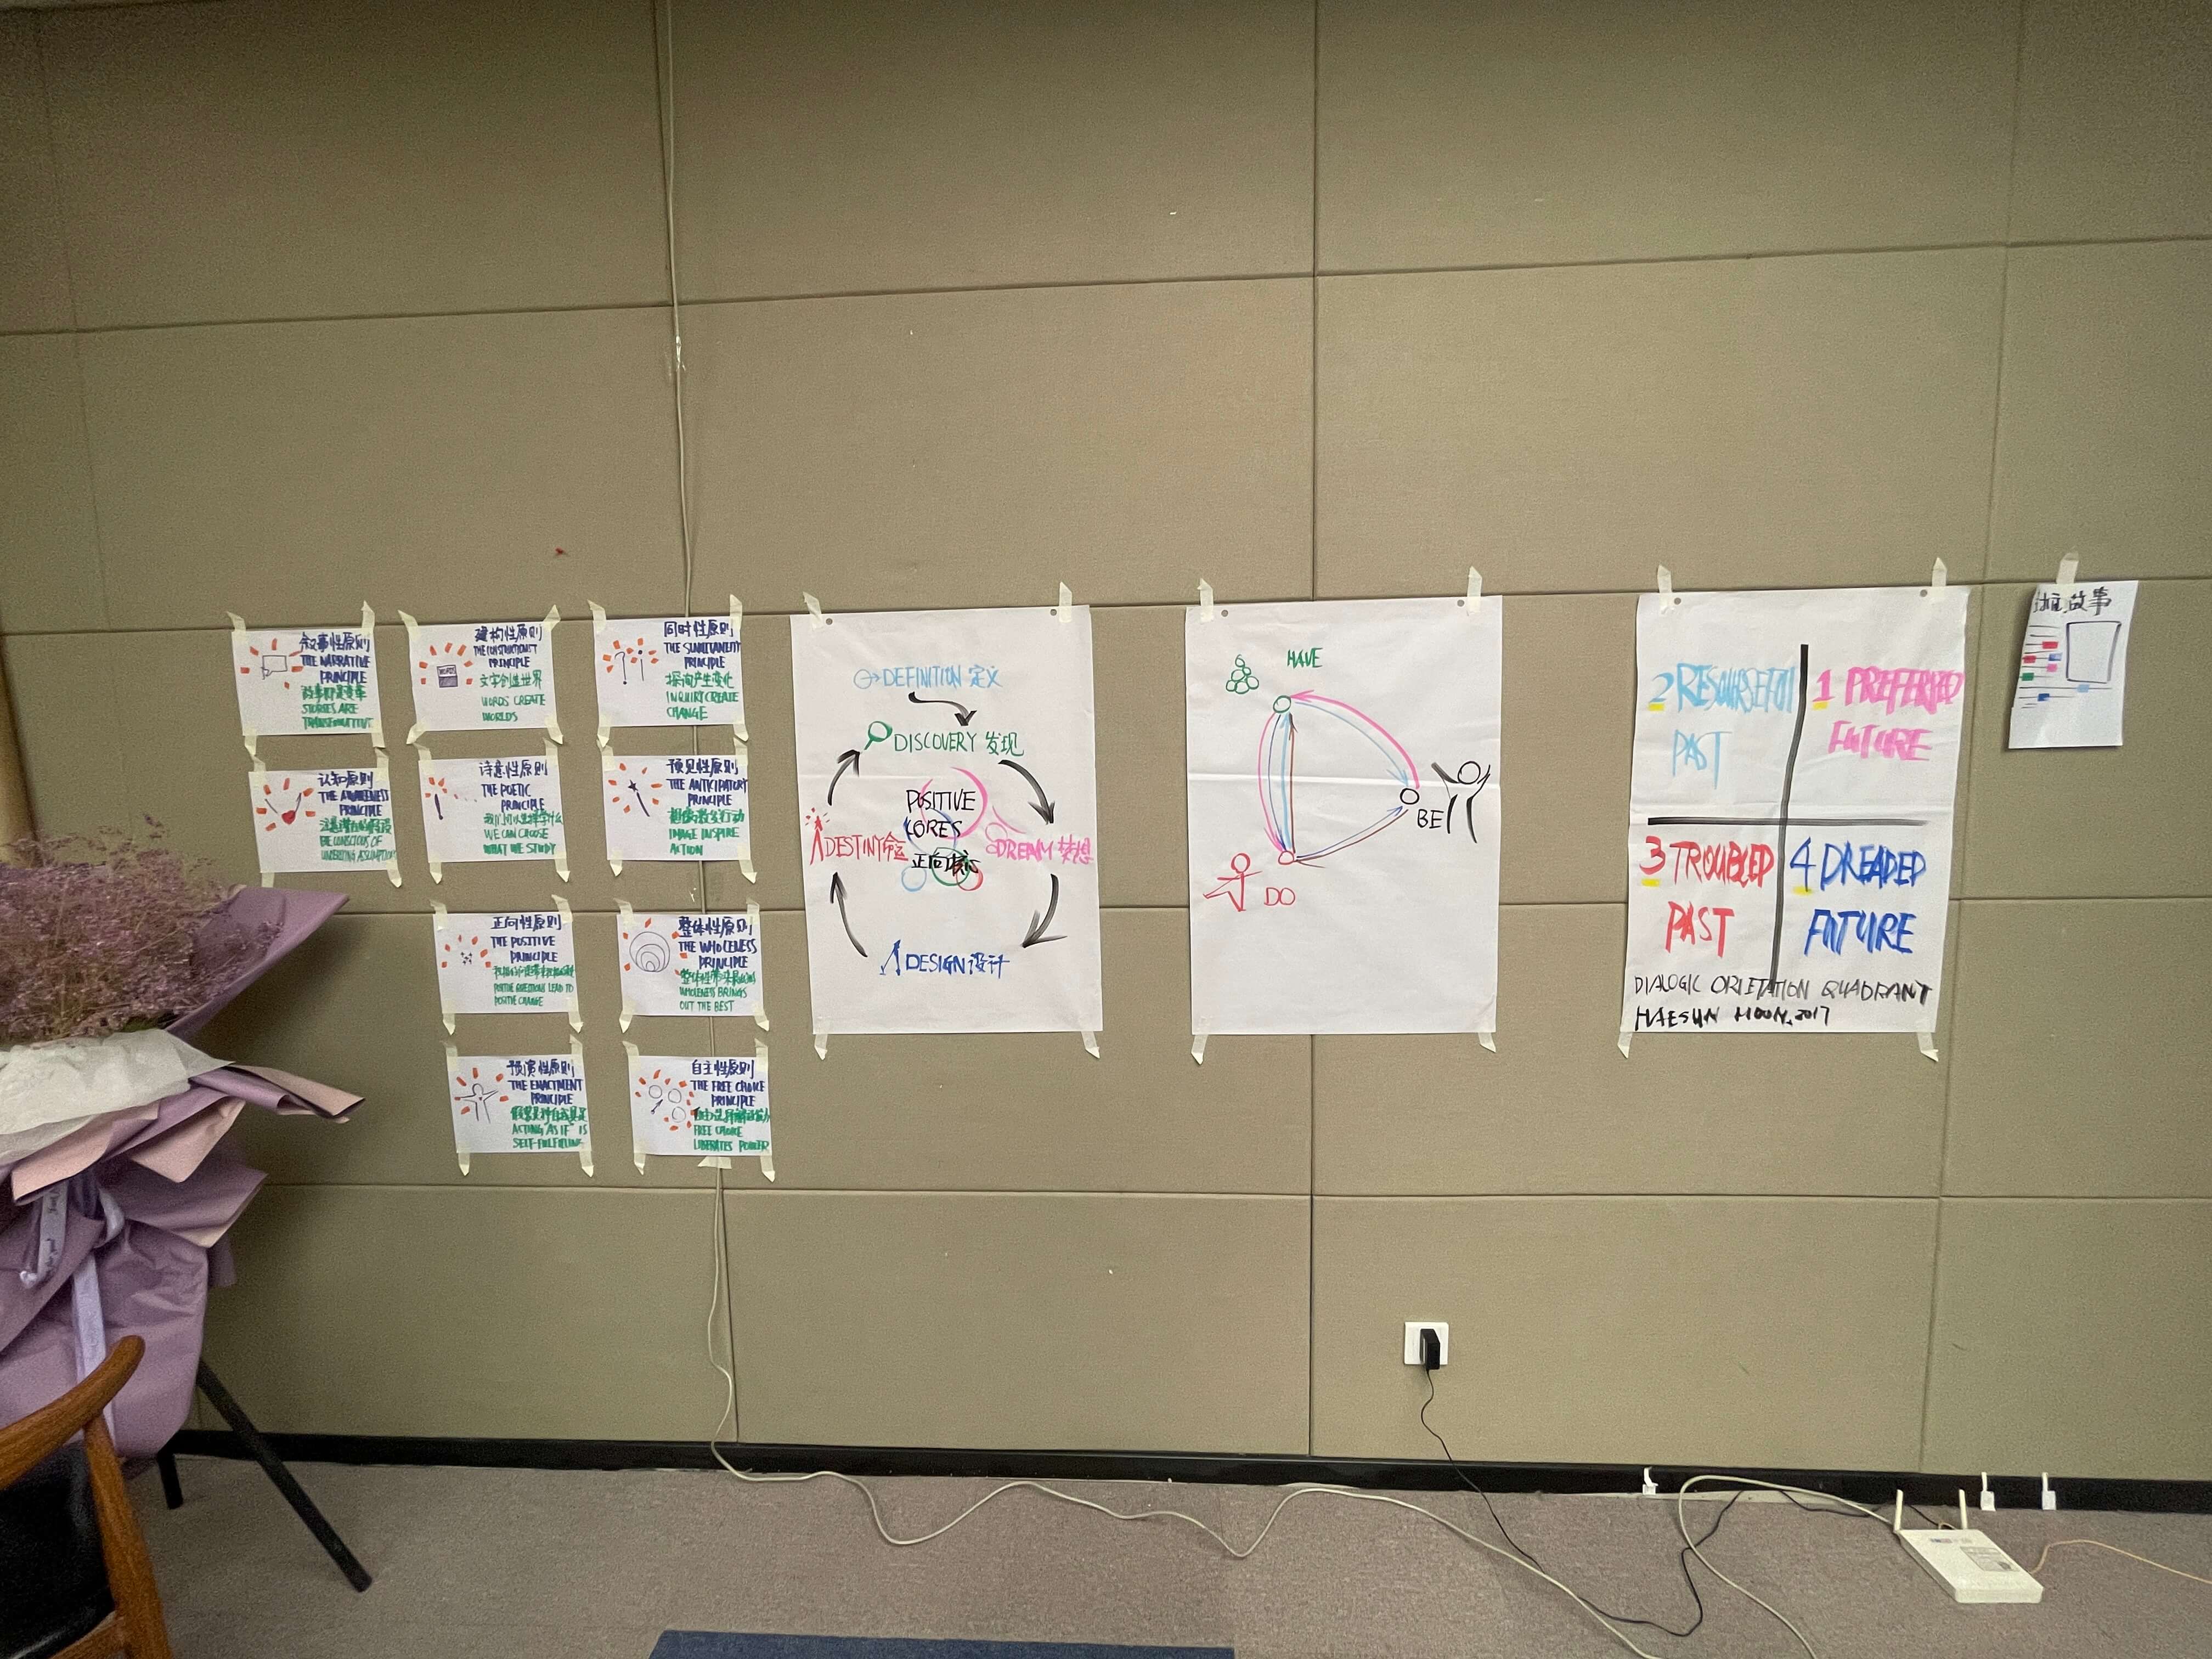 叙事性原则
THE NARRATIVE
PRINCIPLE
故事即是变革
STORIES ARE
TRANSFORMATIVE
建构性原则
THE CONSTRUCTIONIST
PRINCIPLE
文字创造世界
WORDS CREATE
WORLDS
同时性原则
THE SIMULTANEITY
PRINCIPLE
探询产生变化
INQUIRY CREATE
CHANGE
认知原则
THE AWARENESS
PRINCIPLE
BE CONSCIOUS OF
UNDERLYING ASSUMPTION
诗意性原则
THE POETIC
PRINCIPLE
我们可以选择学什么
WE CAN CHOOSE
WHAT WE STUDY
预见性原则
THE ANTICIPATORY
PRINCIPLE
IMAGE INSPIRE
ACTION
正向性原则
THE POSITIVE
PRINCIPLE
POSITIVE QUESTIONS LEAD TO
POSITIVE CHANGE
整体性原则
THE WHOLENESS
PRINCIPLE
WHOLENESS BRINGS
OUT THE BEST
预演性原则
THE ENACTMENT
PRINCIPLE
ACTING "AS IF" IS
SELF-FULFILLING
自主性原则
THE FREE CHOICE
PRINCIPLE
FREE CHOICE
LIBERATES POWER
DEFINITION 定义
DISCOVERY 发现
POSITIVE
CORES
正向核心
DESTINY 命运
DREAM 梦想
DESIGN 设计
HAVE
BE
DO
2 RESOURSEFUL
PAST
1 PREFERRED
FUTURE
3 TROUBLED
PAST
4 DREADED
FUTURE
DIALOGIC ORIETATION QUADRANT
HAESUN MOON, 2017
故事